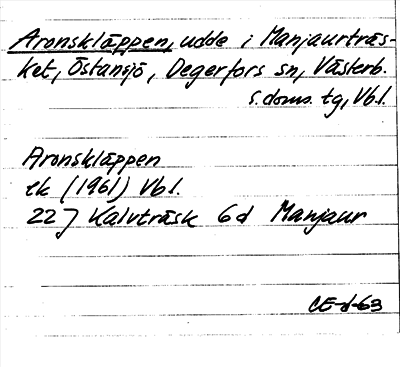 Aronskläppen, udde i Manjaurträs-
ket, Östansjö, Degerfors sn, Västerb.
s. doms. tg, Vb l.
Aronskläppen
ek (1961) Vb l.
22J Kalvträsk 6d Manjaur
CE-d-63